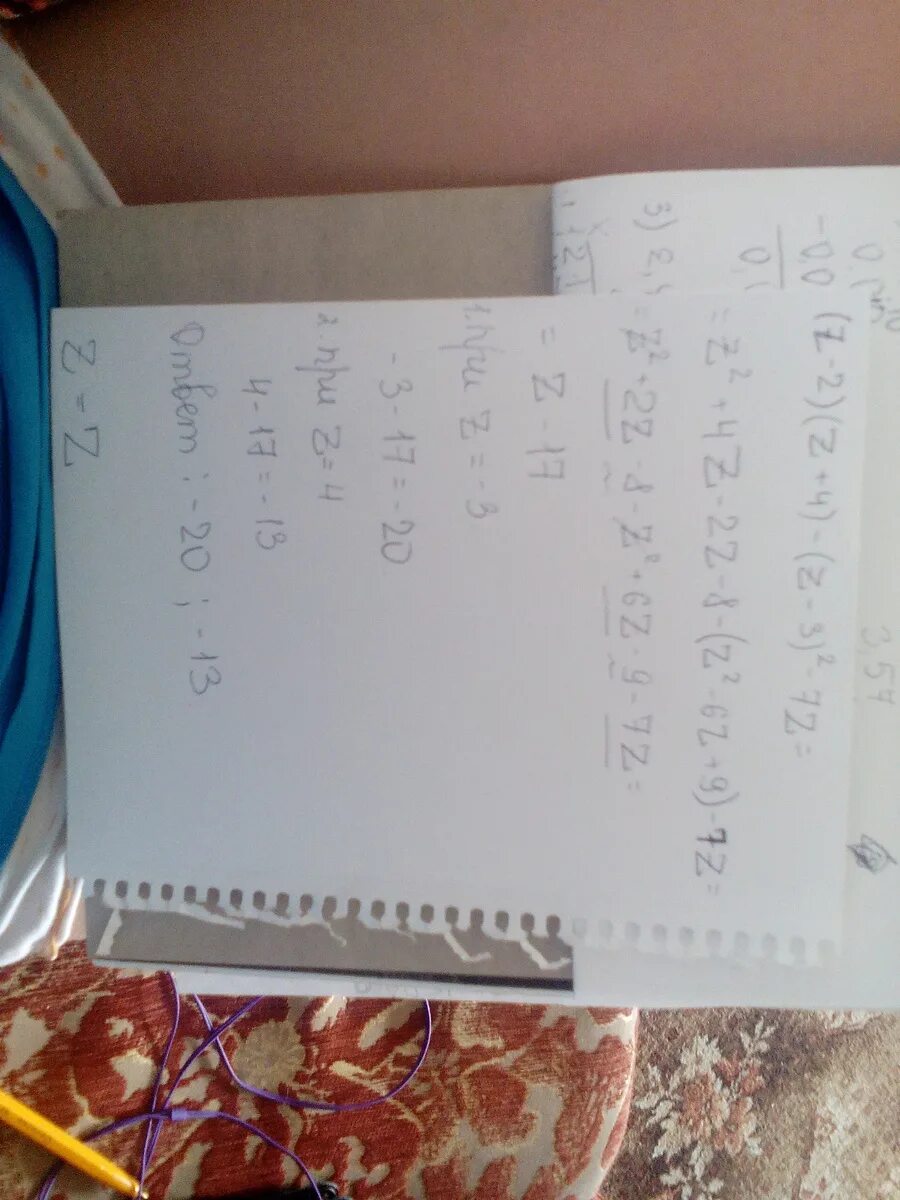 (z-2)(z+4)-(z-3)²-7z=
=z²+4z-2z-8-(z²-6z+9)-7z=
=z²+2z-8-z²+6z-9-7z=
=z-17
1. при z=-3
-3-17=-20
2. при z=4
4-17=-13
Ответ: -20; -13
z-z
3) 2,
3,54